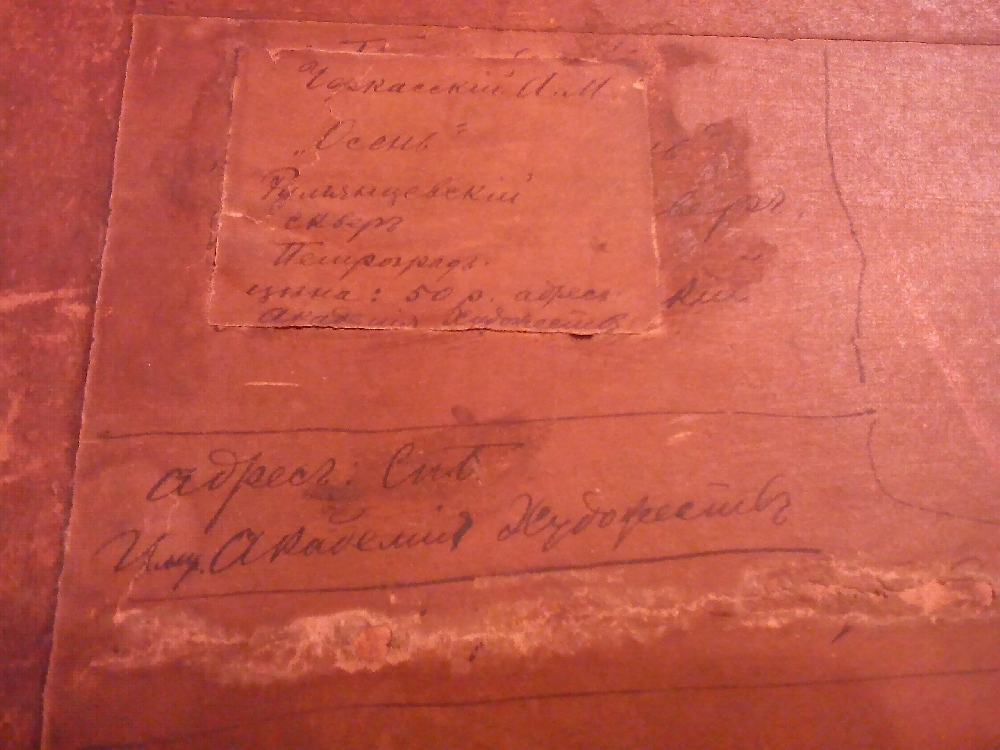 Черкасскій А.М
„Осень“
Румянцевскій
скверъ
Петроградъ.
цѣна: 50 р. адресъ
Академія Художествъ
адресъ: Спб.
Имп. Академія Художествъ